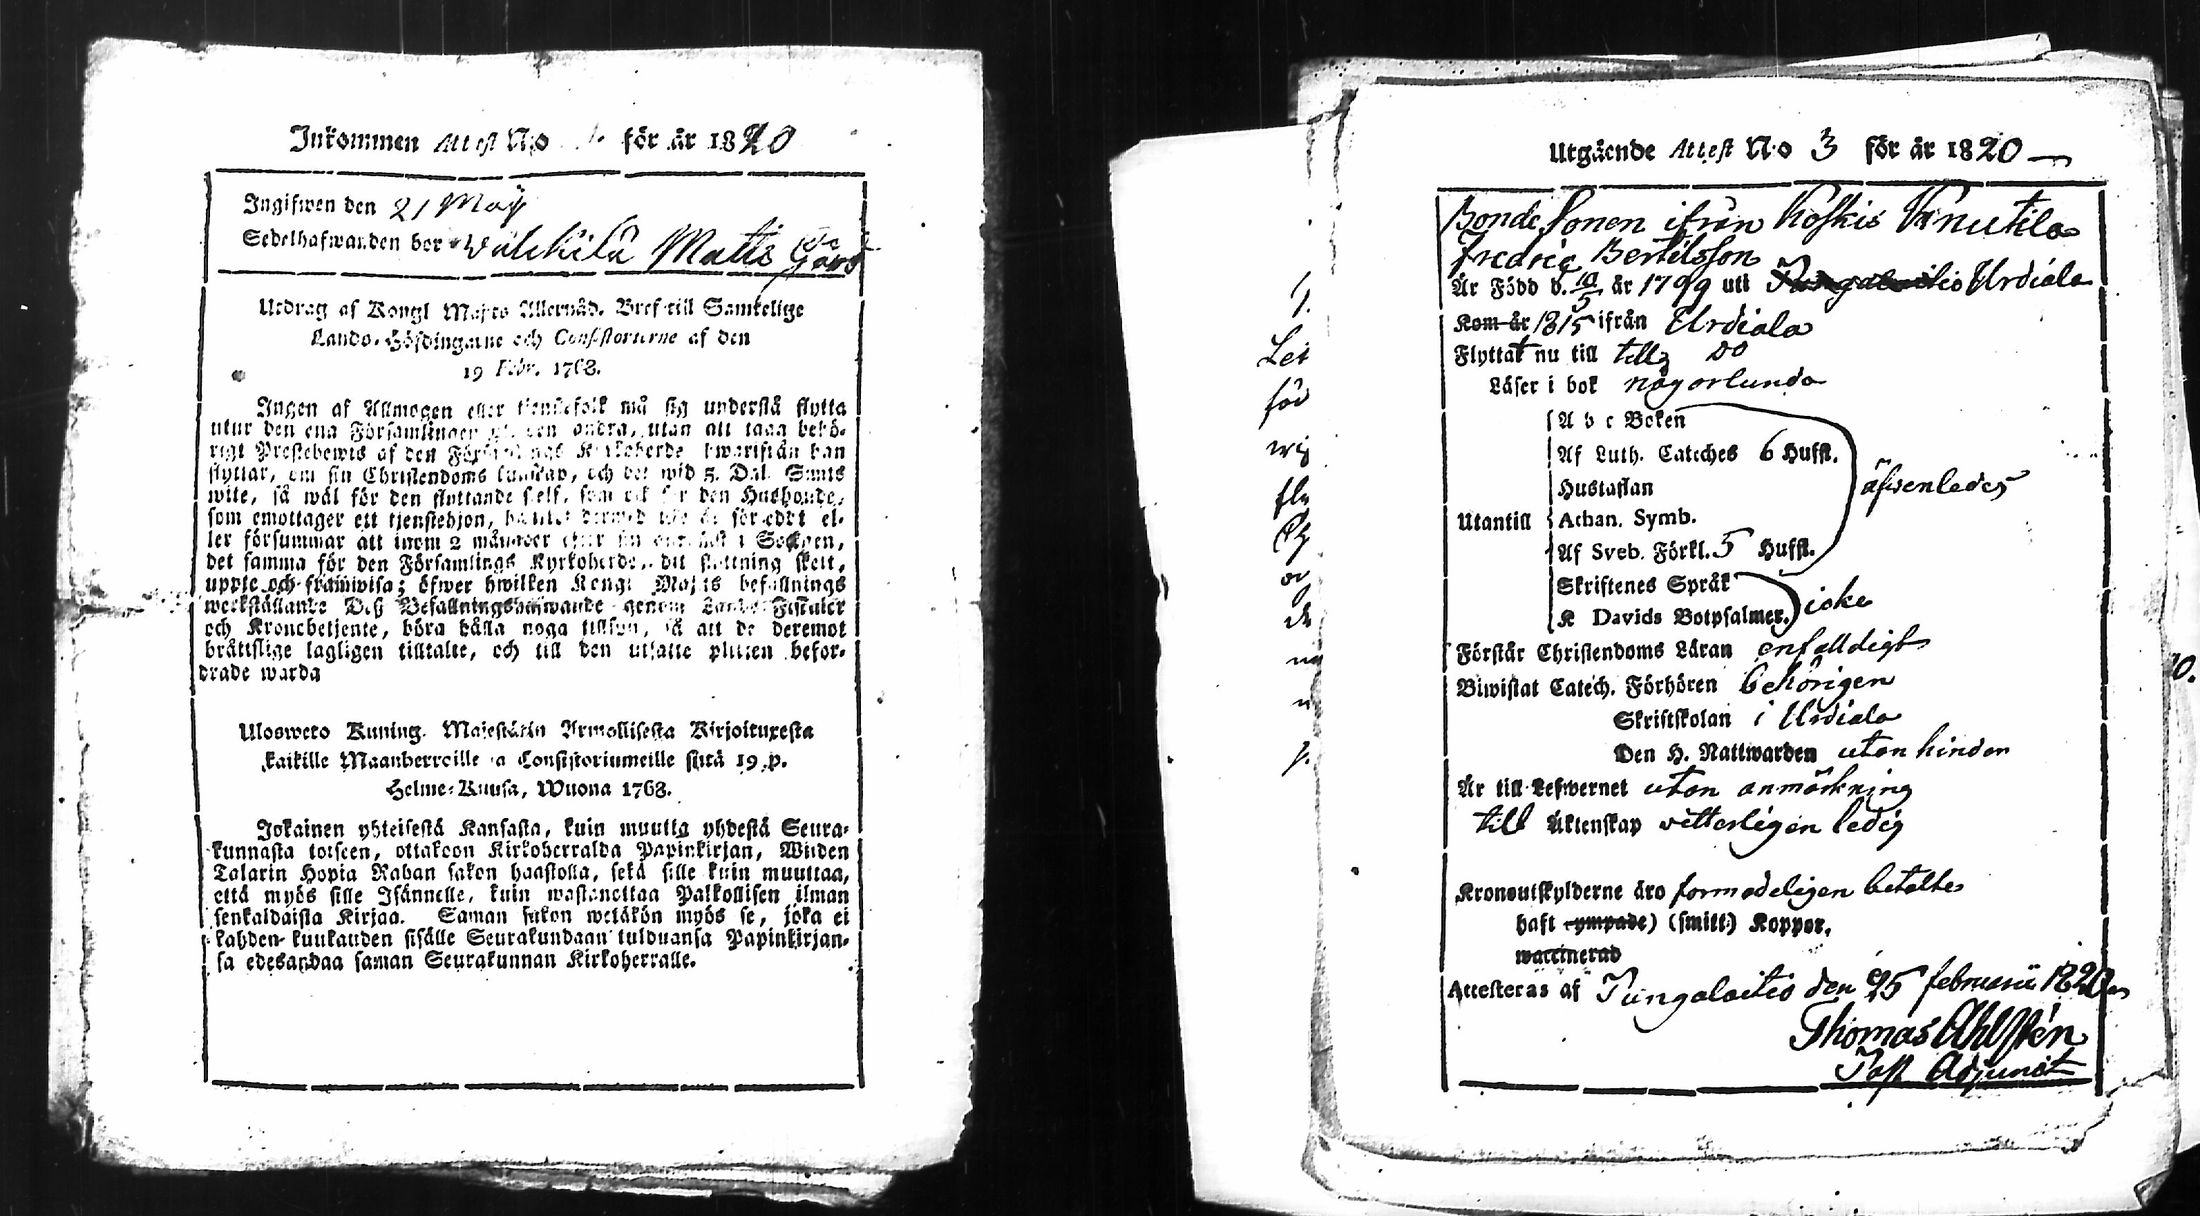 Inkommen Attest N:o för år 1820
Ingifwen den 21 Maÿ
Sedelhafwanden bor Matts Gård
Utdrag af Kongl Maj:ts Allernåd. Bref till Samtelige
Lands-Höfdingarne och Consistorierne af den
19 Febr. 1768.
Ingen af Allmogen eller tjenstefolk må sig understå flytta
utur den ena Församlingen den andra, utan att taga behö-
rigt Prestebewis af den Kyrkoherde hwarifrån han
flyttar, om sin Christendoms kunskap, och det wid 5. Dal. Smts
wite, så wäl för den flyttande sielf, som ock för den Husbonde,
som emottager ett tjenstehjon, el-
ler försummar att inom 2 månader efter sin i Socknen,
det samma för den Församlings Kyrkoherde, dit flyttning skett,
uppte och framwisa; öfwer hwilken Kongl Maj:ts befallnings
werkställande Deß Befallningshafwande genom Lands-Fiskaler
och Kronobetjente, böra hålla noga tillsyn, så att de deremot
bråttslige lagligen tilltalte, och till den utsatte plikten befor-
drade warda
Ulosweto Kuning. Majestätin Armollisesta Kirjoituxesta
kaikille Maanherroille ja Consistoriumeille siitä 19 p.
Helme-Kuusa, Wuona 1768.
Jokainen yhteisestä Kansasta, kuin muutta yhdestä Seura-
kunnasta toiseen, ottakoon Kirkoherralda Papinkirjan, Wiiden
Talarin Hopia Rahan sakon haastolla, sekä sille kuin muuttaa,
että myös sille Isännelle, kuin wastanottaa Palkollisen ilman
senkaldaista Kirjaa. Saman sakon wetäkön myös se, joka ei
kahden kuukauden sisälle Seurakundaan tulduansa Papinkirjan-
sa edesandaa saman Seurakunnan Kirkoherralle.
Utgående Attest N:o 3 för år 1820
Bonde Sonen ifrån Koskis Knutila
Fredric Bertilsson
Är Född d. 10/5 år 1799 uti Urdiala
Kom år 1815 ifrån Urdiala
Flyttat nu till till Do
Läser i bok någorlunda
A b c Boken
Af Luth. Catches 6 Hufst.
Hustaflan
äfwenledes
Utantill Athan. Symb.
Af Sveb. Förkl. 5 Hufst.
Skriftenes Språk
K Davids Botpsalmer. icke
Förstår Christendoms Läran enfaldigt
Biwistat Catech. Förhören behörigen
Skriftskolan i Urdiala
Den H. Nattwarden utan hinder
Är till Lefwernet utan anmärkning
till Äktenskap vetterligen ledig
Kronoutskylderne äro formodeligen betalte
haft ympade) (smitt-) Koppor.
waccinerad
Attesteras af Tungelaitis den 25 februarii 1820
Thomas Ahlstén
Past Adjunct